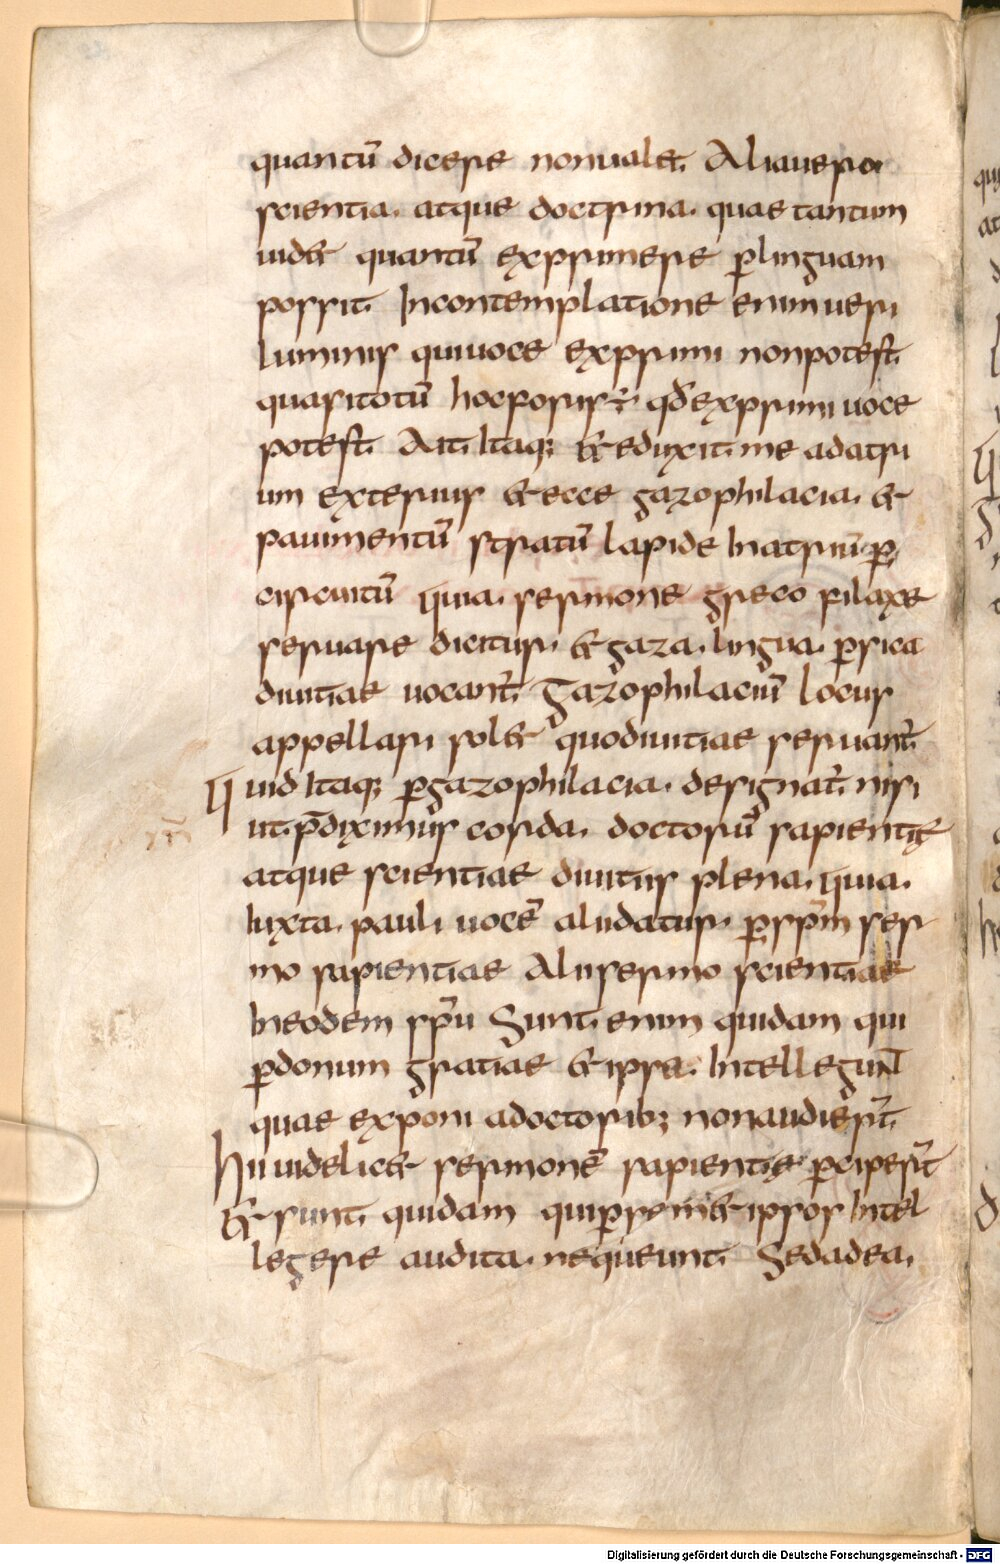 quantū dicere nonualet. Aliauero
scientia. atque doctrina. quae tantum
uidet quantū exprimere ꝑlinguam
possit. Incontemplatione enimueri
luminis quiuoce exprimi nonpotest.
quasitotū hocforis÷ qđexprimiuoce
potest. Ait. Itaq; & eduxit. me adatri
um exterius & ecce gazophilacia. &
pauimentū stratū lapide Inatriū ꝑ
circuitū Quia. sermone greco filaxe
seruare dicitur. & gaza. lingua. ꝑsica
diuitiae uocant̄. Gazophilaciū locus
appellari solet quodiuitiae seruant̄.
Quid Itaq; ꝑgazophilacia. designat̄. nisi
ut. p̄diximus corda. doctorū sapientię
atque scientiae diuitiis plena. Quia.
Iuxta. pauli uocē aliidatur. ꝑsp̄m ser
mo sapientiae Aliisermo scientiae
Ineodem sp̄u Sunt. enim quidam qui
ꝑdonum gratiae & ipsa. Intellegun̄t
quae exponi adoctorib; nonaudier̄t.
Hiiuidelicet sermonē sapientię ꝑciper̄t
& sunt. quidam quiꝑsem&ipsos Intel
legere audita. nequeunt. Sedadea.
Digitalisierung gefördert durch die Deutsche Forschungsgemeinschaft - DFG